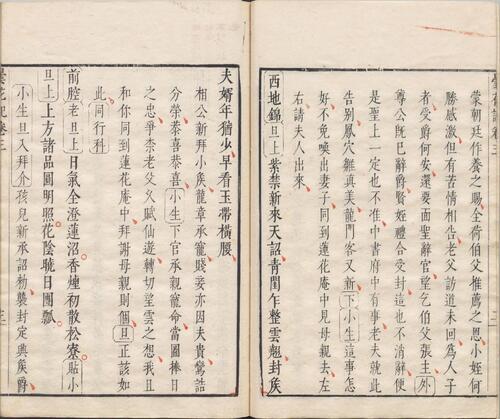 蒙朝廷作養之賜全荷伯父推薦之恩小姪何
勝感激但有苦情相告老父訪道未回爲人子
者受爵何安還要面聖辭官望乞伯父張主外
尊公既已辭爵賢姪禮合受封這也不消辭便
是聖上一定也不准中書府中有事老夫就此
告别鳳穴雛真美龍門客又新下小生這事怎
好不免喚出妻子同到蓮花庵中見母親去左
右請夫人出來
西地錦旦上紫禁新來天詔青閨乍整雲翹封矦
夫婿年猶少早看玉帶橫腰
相公新拜小矦龍章承寵賤妾亦因夫貴鸞誥
分榮恭喜恭喜小生下官承親寵命當圖捧日
之忠爭柰老父久賦仙遊轉切望雲之想我且
和你同到蓮花庵中拜謝母親則個旦正該如
此同行科
前腔老旦上日氣全澄蓮沼香煙初散松寮貼小
旦上上方諸品圓明照花陰毹日團瓢
小生旦入拜介孩兒新承詔勑襲封定興矦爵
曇花記卷三
三